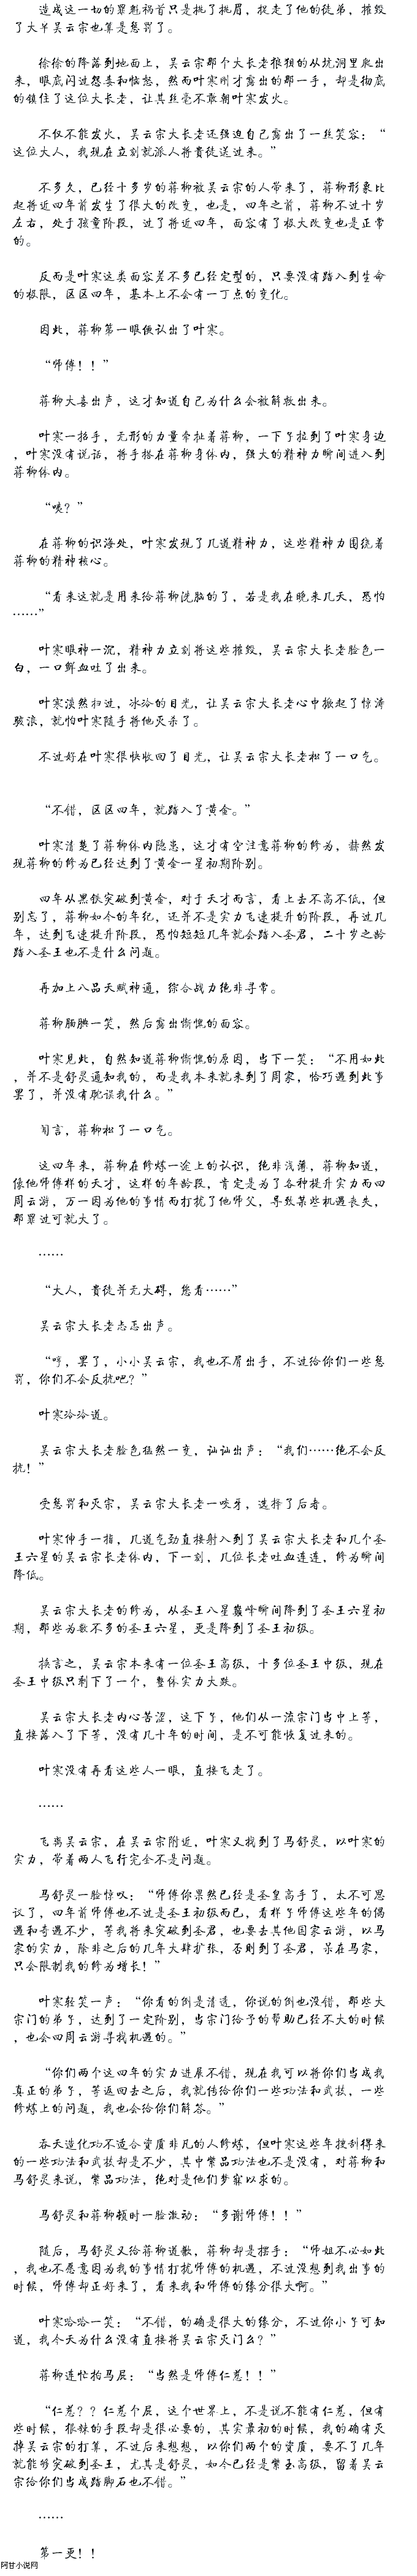 造成这一切的罪魁祸首只是挑了挑眉，捉走了他的徒弟，摧毁
了大半吴云宗也算是惩罚了。
徐徐的降落到地面上，吴云宗那个大长老狼狈的从坑洞里爬出
来，眼底闪过怨毒和恼怒，然而叶寒刚才露出的那一手，却是彻底
的镇住了这位大长老，让其丝毫不敢朝叶寒发火。
不仅不能发火，吴云宗大长老还强迫自己露出了一丝笑容：“
这位大人，我现在立刻就派人将贵徒送过来。”
不多久，已经十多岁的蒋柳被吴云宗的人带来了，蒋柳形象比
起将近四年前发生了很大的改变，也是，四年之前，蒋柳不过十岁
左右，处于孩童阶段，过了将近四年，面容有了极大改变也是正常
的。
反而是叶寒这类面容差不多已经定型的，只要没有踏入到生命
的极限，区区四年，基本上不会有一丁点的变化。
因此，蒋柳第一眼便认出了叶寒。
“师傅！！”
蒋柳大喜出声，这才知道自己为什么会被解救出来。
叶寒一招手，无形的力量牵扯着蒋柳，一下子拉到了叶寒身边
，叶寒没有说话，将手搭在蒋柳身体内，强大的精神力瞬间进入到
蒋柳体内。
“咦？”
在蒋柳的识海处，叶寒发现了几道精神力，这些精神力围绕着
蒋柳的精神核心。
“看来这就是用来给蒋柳洗脑的了，若是我在晚来几天，恐怕
……”
叶寒眼神一沉，精神力立刻将这些摧毁，吴云宗大长老脸色一
白，一口鲜血吐了出来。
叶寒淡然扫过，冰冷的目光，让吴云宗大长老心中掀起了惊涛
骇浪，就怕叶寒随手将他灭杀了。
不过好在叶寒很快收回了目光，让吴云宗大长老松了一口气。
“不错，区区四年，就踏入了黄金。”
叶寒清楚了蒋柳体内隐患，这才有空注意蒋柳的修为，赫然发
现蒋柳的修为已经达到了黄金一星初期阶别。
四年从黑铁突破到黄金，对于天才而言，看上去不高不低，但
别忘了，蒋柳如今的年纪，还并不是实力飞速提升的阶段，再过几
年，达到飞速提升阶段，恐怕短短几年就会踏入圣君，二十岁之龄
踏入圣王也不是什么问题。
再加上八品天赋神通，综合战力绝非寻常。
蒋柳腼腆一笑，然后露出惭愧的面容。
叶寒见此，自然知道蒋柳惭愧的原因，当下一笑：“不用如此
，并不是舒灵通知我的，而是我本来就来到了周家，恰巧遇到此事
罢了，并没有耽误我什么。”
闻言，蒋柳松了一口气。
这四年来，蒋柳在修炼一途上的认识，绝非浅薄，蒋柳知道，
像他师傅样的天才，这样的年龄段，肯定是为了各种提升实力而四
周云游，万一因为他的事情而打扰了他师父，导致某些机遇丧失，
那罪过可就大了。
……
“大人，贵徒并无大碍，您看……”
吴云宗大长老忐忑出声。
“哼，罢了，小小吴云宗，我也不屑出手，不过给你们一些惩
罚，你们不会反抗吧？”
叶寒冷冷道。
吴云宗大长老脸色猛然一变，讪讪出声：“我们……绝不会反
抗！”
受惩罚和灭宗，吴云宗大长老一咬牙，选择了后者。
叶寒伸手一指，几道气劲直接射入到了吴云宗大长老和几个圣
王六星的吴云宗长老体内，下一刻，几位长老吐血连连，修为瞬间
降低。
吴云宗大长老的修为，从圣王八星巅峰瞬间降到了圣王六星初
期，那些为数不多的圣王六星，更是降到了圣王初级。
换言之，吴云宗本来有一位圣王高级，十多位圣王中级，现在
圣王中级只剩下了一个，整体实力大跌。
吴云宗大长老内心苦涩，这下子，他们从一流宗门当中上等，
直接落入了下等，没有几十年的时间，是不可能恢复过来的。
叶寒没有再看这些人一眼，直接飞走了。
……
飞离吴云宗，在吴云宗附近，叶寒又找到了马舒灵，以叶寒的
实力，带着两人飞行完全不是问题。
马舒灵一脸惊叹：“师傅你果然已经是圣皇高手了，太不可思
议了，四年前师傅也不过是圣王初级而已，看样子师傅这些年的偶
遇和奇遇不少，等我将来突破到圣君，也要去其他国家云游，以马
家的实力，除非之后的几年大肆扩张，否则到了圣君，呆在马家，
只会限制我的修为增长！”
叶寒轻笑一声：“你看的倒是清透，你说的倒也没错，那些大
宗门的弟子，达到了一定阶别，当宗门给予的帮助已经不大的时候
，也会四周云游寻找机遇的。”
“你们两个这四年的实力进展不错，现在我可以将你们当成我
真正的弟子，等返回去之后，我就传给你们一些功法和武技，一些
修炼上的问题，我也会给你们解答。”
吞天造化功不适合资质非凡的人修炼，但叶寒这些年搜刮得来
的一些功法和武技却是不少，其中紫品功法也不是没有，对蒋柳和
马舒灵来说，紫品功法，绝对是他们梦寐以求的。
马舒灵和蒋柳顿时一脸激动：“多谢师傅！！”
随后，马舒灵又给蒋柳道歉，蒋柳却是摆手：“师姐不必如此
，我也不愿意因为我的事情打扰师傅的机遇，不过没想到我出事的
时候，师傅却正好来了，看来我和师傅的缘分很大啊。”
叶寒哈哈一笑：“不错，的确是很大的缘分，不过你小子可知
道，我今天为什么没有直接将吴云宗灭门么？”
蒋柳连忙拍马屁：“当然是师傅仁慈！！”
“仁慈？？仁慈个屁，这个世界上，不是说不能有仁慈，但有
些时候，狠辣的手段却是很必要的，其实最初的时候，我的确有灭
掉吴云宗的打算，不过后来想想，以你们两个的资质，要不了几年
就能够突破到圣王，尤其是舒灵，如今已经是紫玉高级，留着吴云
宗给你们当成踏脚石也不错。”
……
第一更！！
阿甘小说网